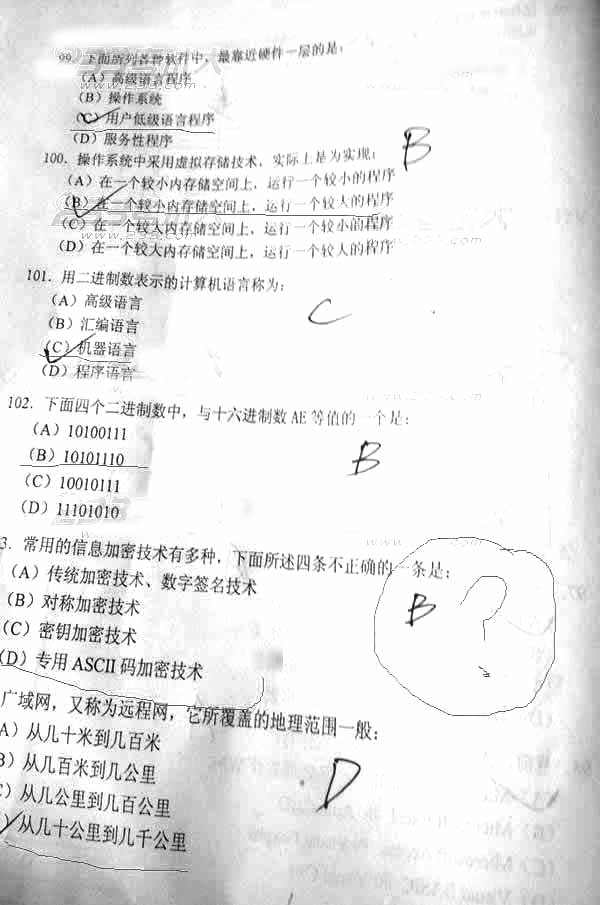 99. 下面所列各种软件中，最靠近硬件一层的是：
(A) 高级语言程序
(B) 操作系统
(C) 用户低级语言程序
(D) 服务性程序
B
100. 操作系统中采用虚拟存储技术，实际上是为实现：
(A) 在一个较小内存储空间上，运行一个较小的程序
(B) 在一个较小内存储空间上，运行一个较大的程序
(C) 在一个较大内存储空间上，运行一个较小的程序
(D) 在一个较大内存储空间上，运行一个较大的程序
101. 用二进制数表示的计算机语言称为：
(A) 高级语言
(B) 汇编语言
(C) 机器语言
(D) 程序语言
C
102. 下面四个二进制数中，与十六进制数 AE 等值的一个是：
(A) 10100111
(B) 10101110
(C) 10010111
(D) 11101010
B
3. 常用的信息加密技术有多种，下面所述四条不正确的一条是：
(A) 传统加密技术、数字签名技术
(B) 对称加密技术
(C) 密钥加密技术
(D) 专用 ASCII 码加密技术
B ?
广域网，又称为远程网，它所覆盖的地理范围一般：
A) 从几十米到几百米
B) 从几百米到几公里
C) 从几公里到几百公里
) 从几十公里到几千公里
D